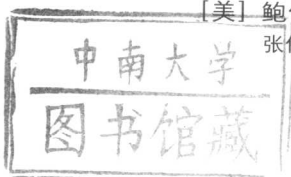 [美] 鲍
张
中南大学
图书馆藏